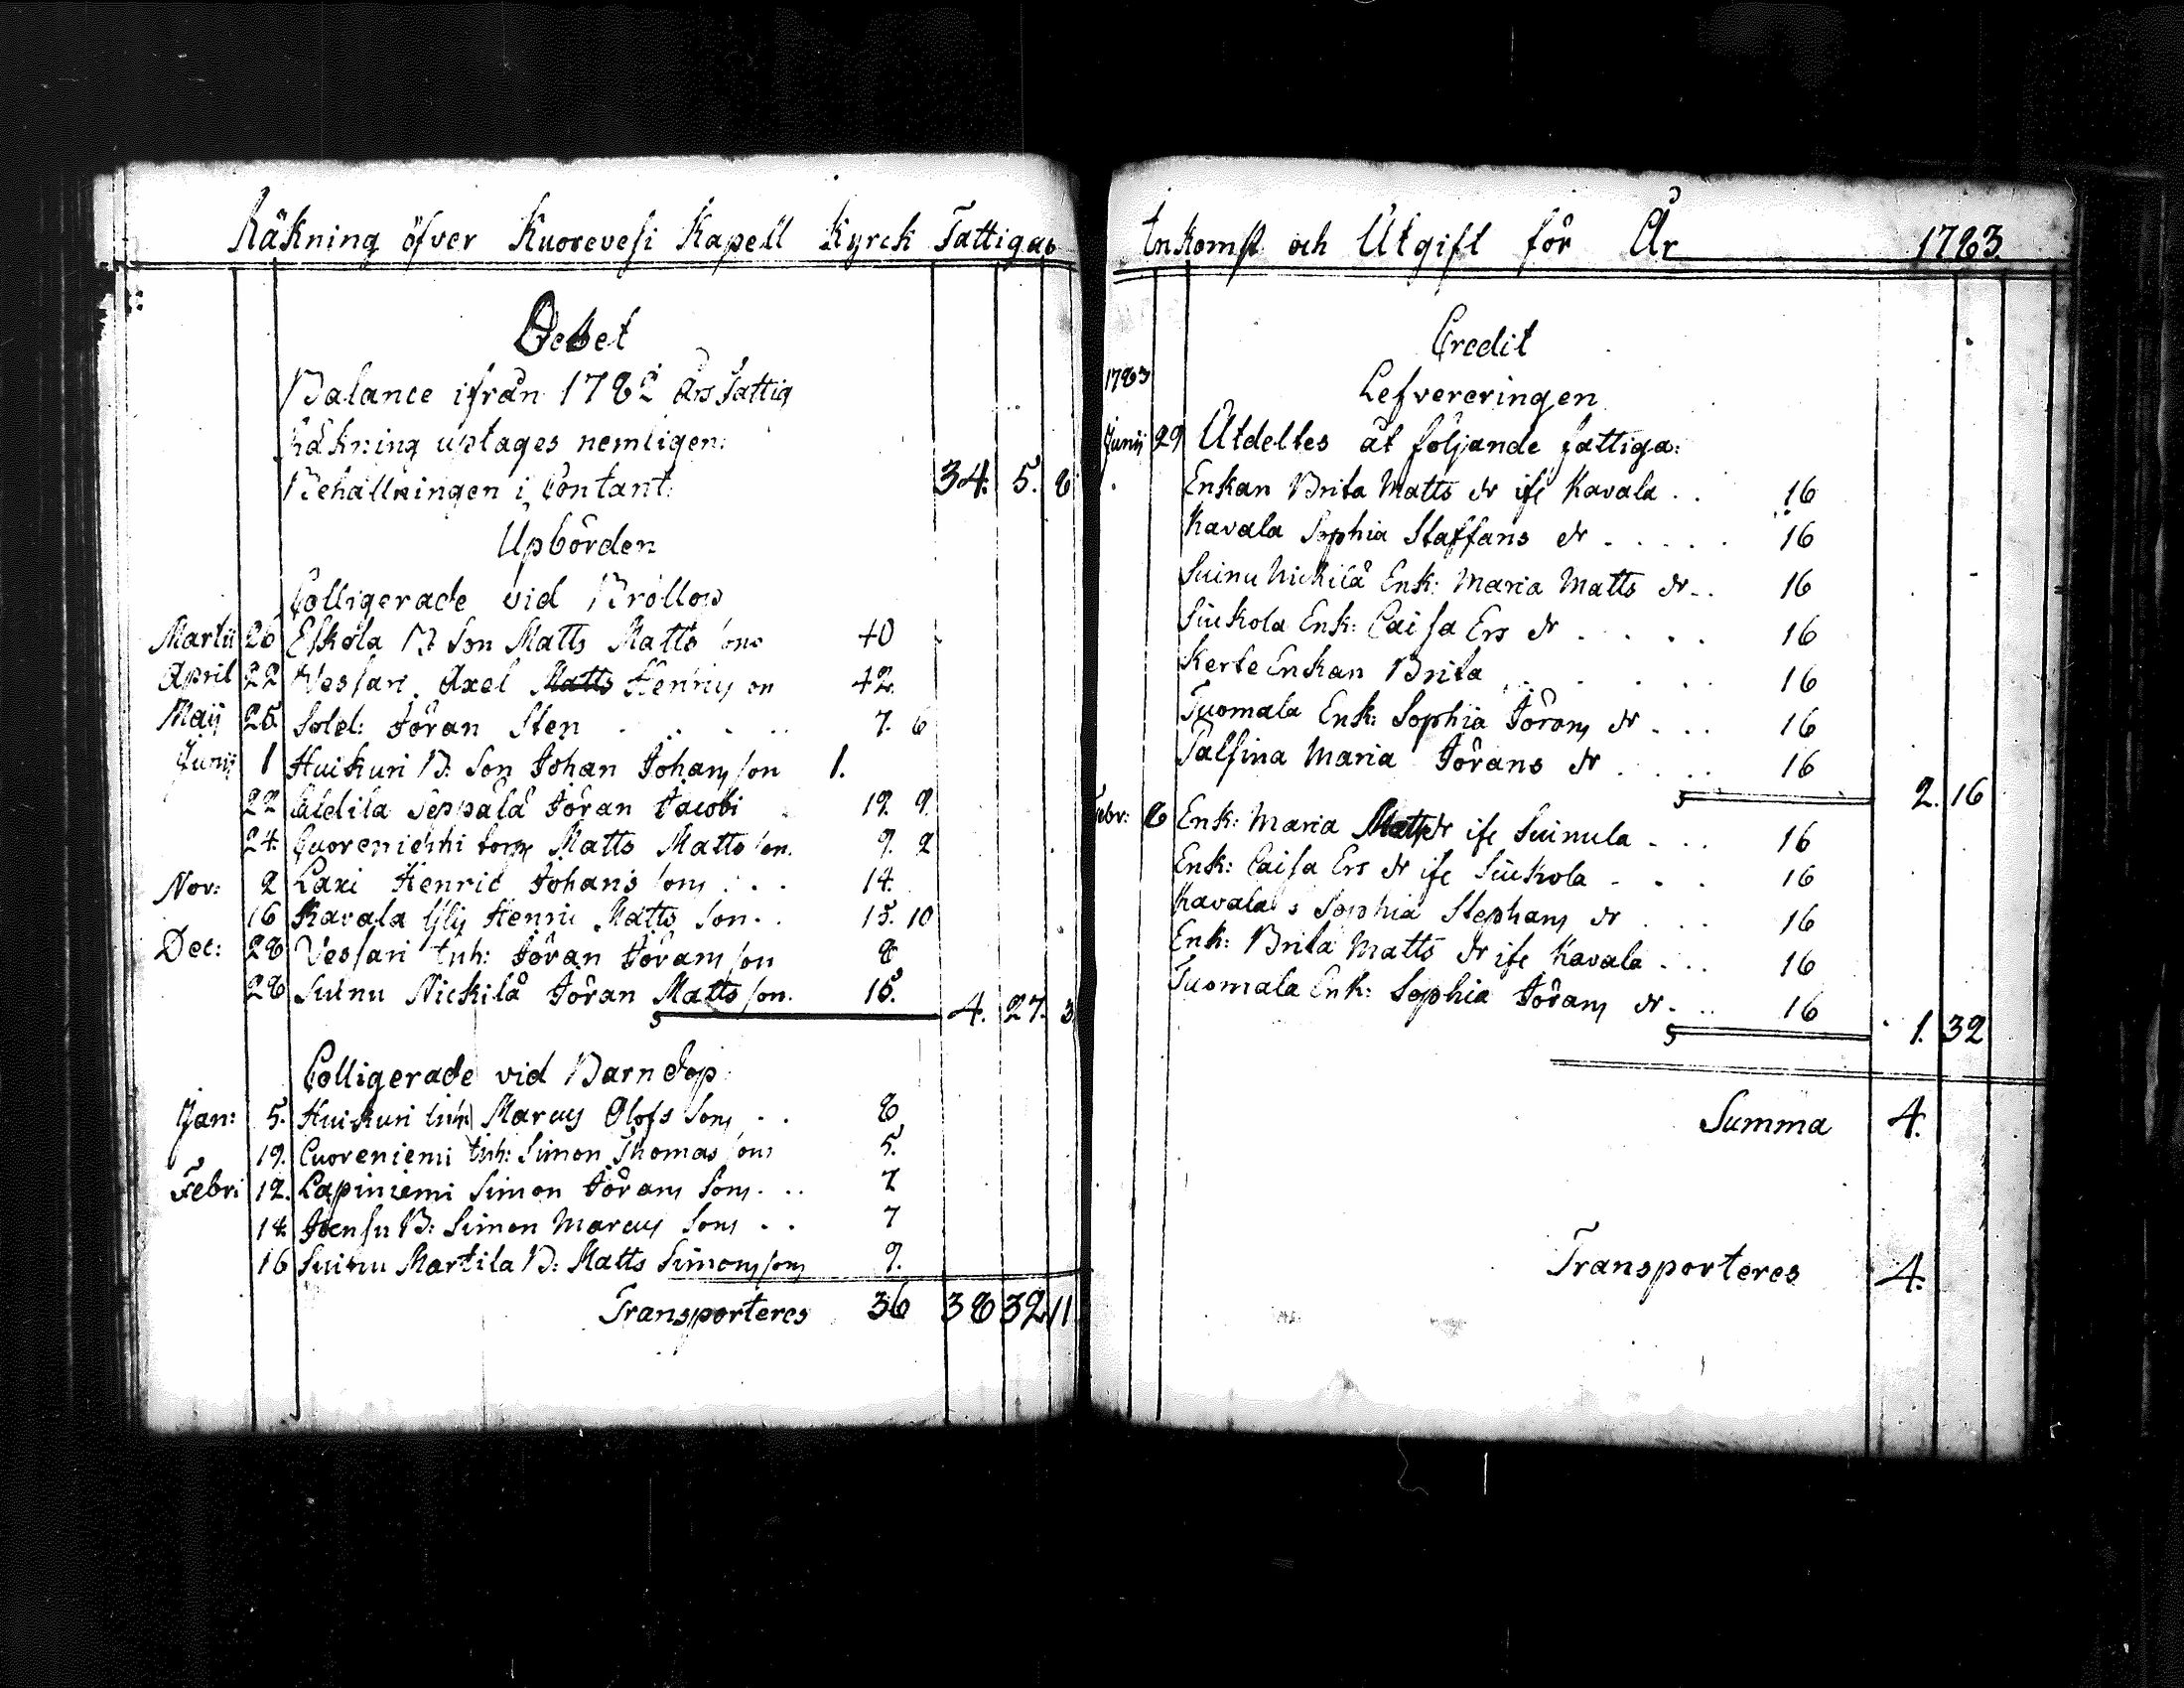 Räkning öfver Kuorevesi Kapell Kyrck Fattigas
Debet
Balance ifrån 1782 års Fattig
Räkning uptages nemligen:
Behållningen i Contant: 34. 5. 8
Upbörden
Colligerade vid Bröllop
Martii 26 Eskola B Son Matts Matts sons 40
April 22 Vessari Axel Henrics on 42.
Maij 25. Sold: Jöran Sten 7. 6
Junij 1 Huikuri B: Son Johan Johans son 1.
22 Seppälä Jöran Jacobi 19. 9.
24. Matts Matts son. 9. 2
Nov: 2 Laxi Henric Johans sons . . . 14.
16 Kavala Henric Matts son. . 15. 10
Dec: 28 Vessari Inh: Jöran Jörans son 8
28 Suinu Nickilä Jöran Matts son. 15.
4. 27. 3
Colligerade vid Barndop:
Jan: 5. Huikuri Inh: Marcus Olofs sons . . 8
19. Cuoreniemi Inh: Simon Thomas sons 5.
Febr: 12. Lapiniemi Simon Jörans sons . . . 7
14. B: Simon Marcus sons . . 7
16 Suinu Martila B: Matts Simons sons 9.
Transporteres 36 38 32 11.
Inkomst och Utgift för År 1783.
Credit
1783 Lefvereringen
Junij 29 Utdeltes åt följande fattiga:
Enkan Brita Matts dr ifr Kavala . . 16
Kavala Sophia Staffans dr . . . . . 16
Suinu Nickilä Enk: Maria Matts dr . . 16
Siukola Enk: Caisa Ers dr . . . . 16
Kerte Enkan Brita . . . . . 16
Tuomala Enk: Sophia Jörans dr . . . 16
Palsina Maria Jörans dr . . . . 16
2. 16
Febr: 8 Enk: Maria Matts dr ifr Suinula . . . 16
Enk: Caisa Ers dr ifr Siukola . . . 16
Kavala s Sophia Stephans dr . . . 16
Enk: Brita Matts dr ifr Kavala . . . 16
Tuomala Enk: Sophia Jörans dr . . . 16
1. 32
Summa 4.
Transporteres 4.